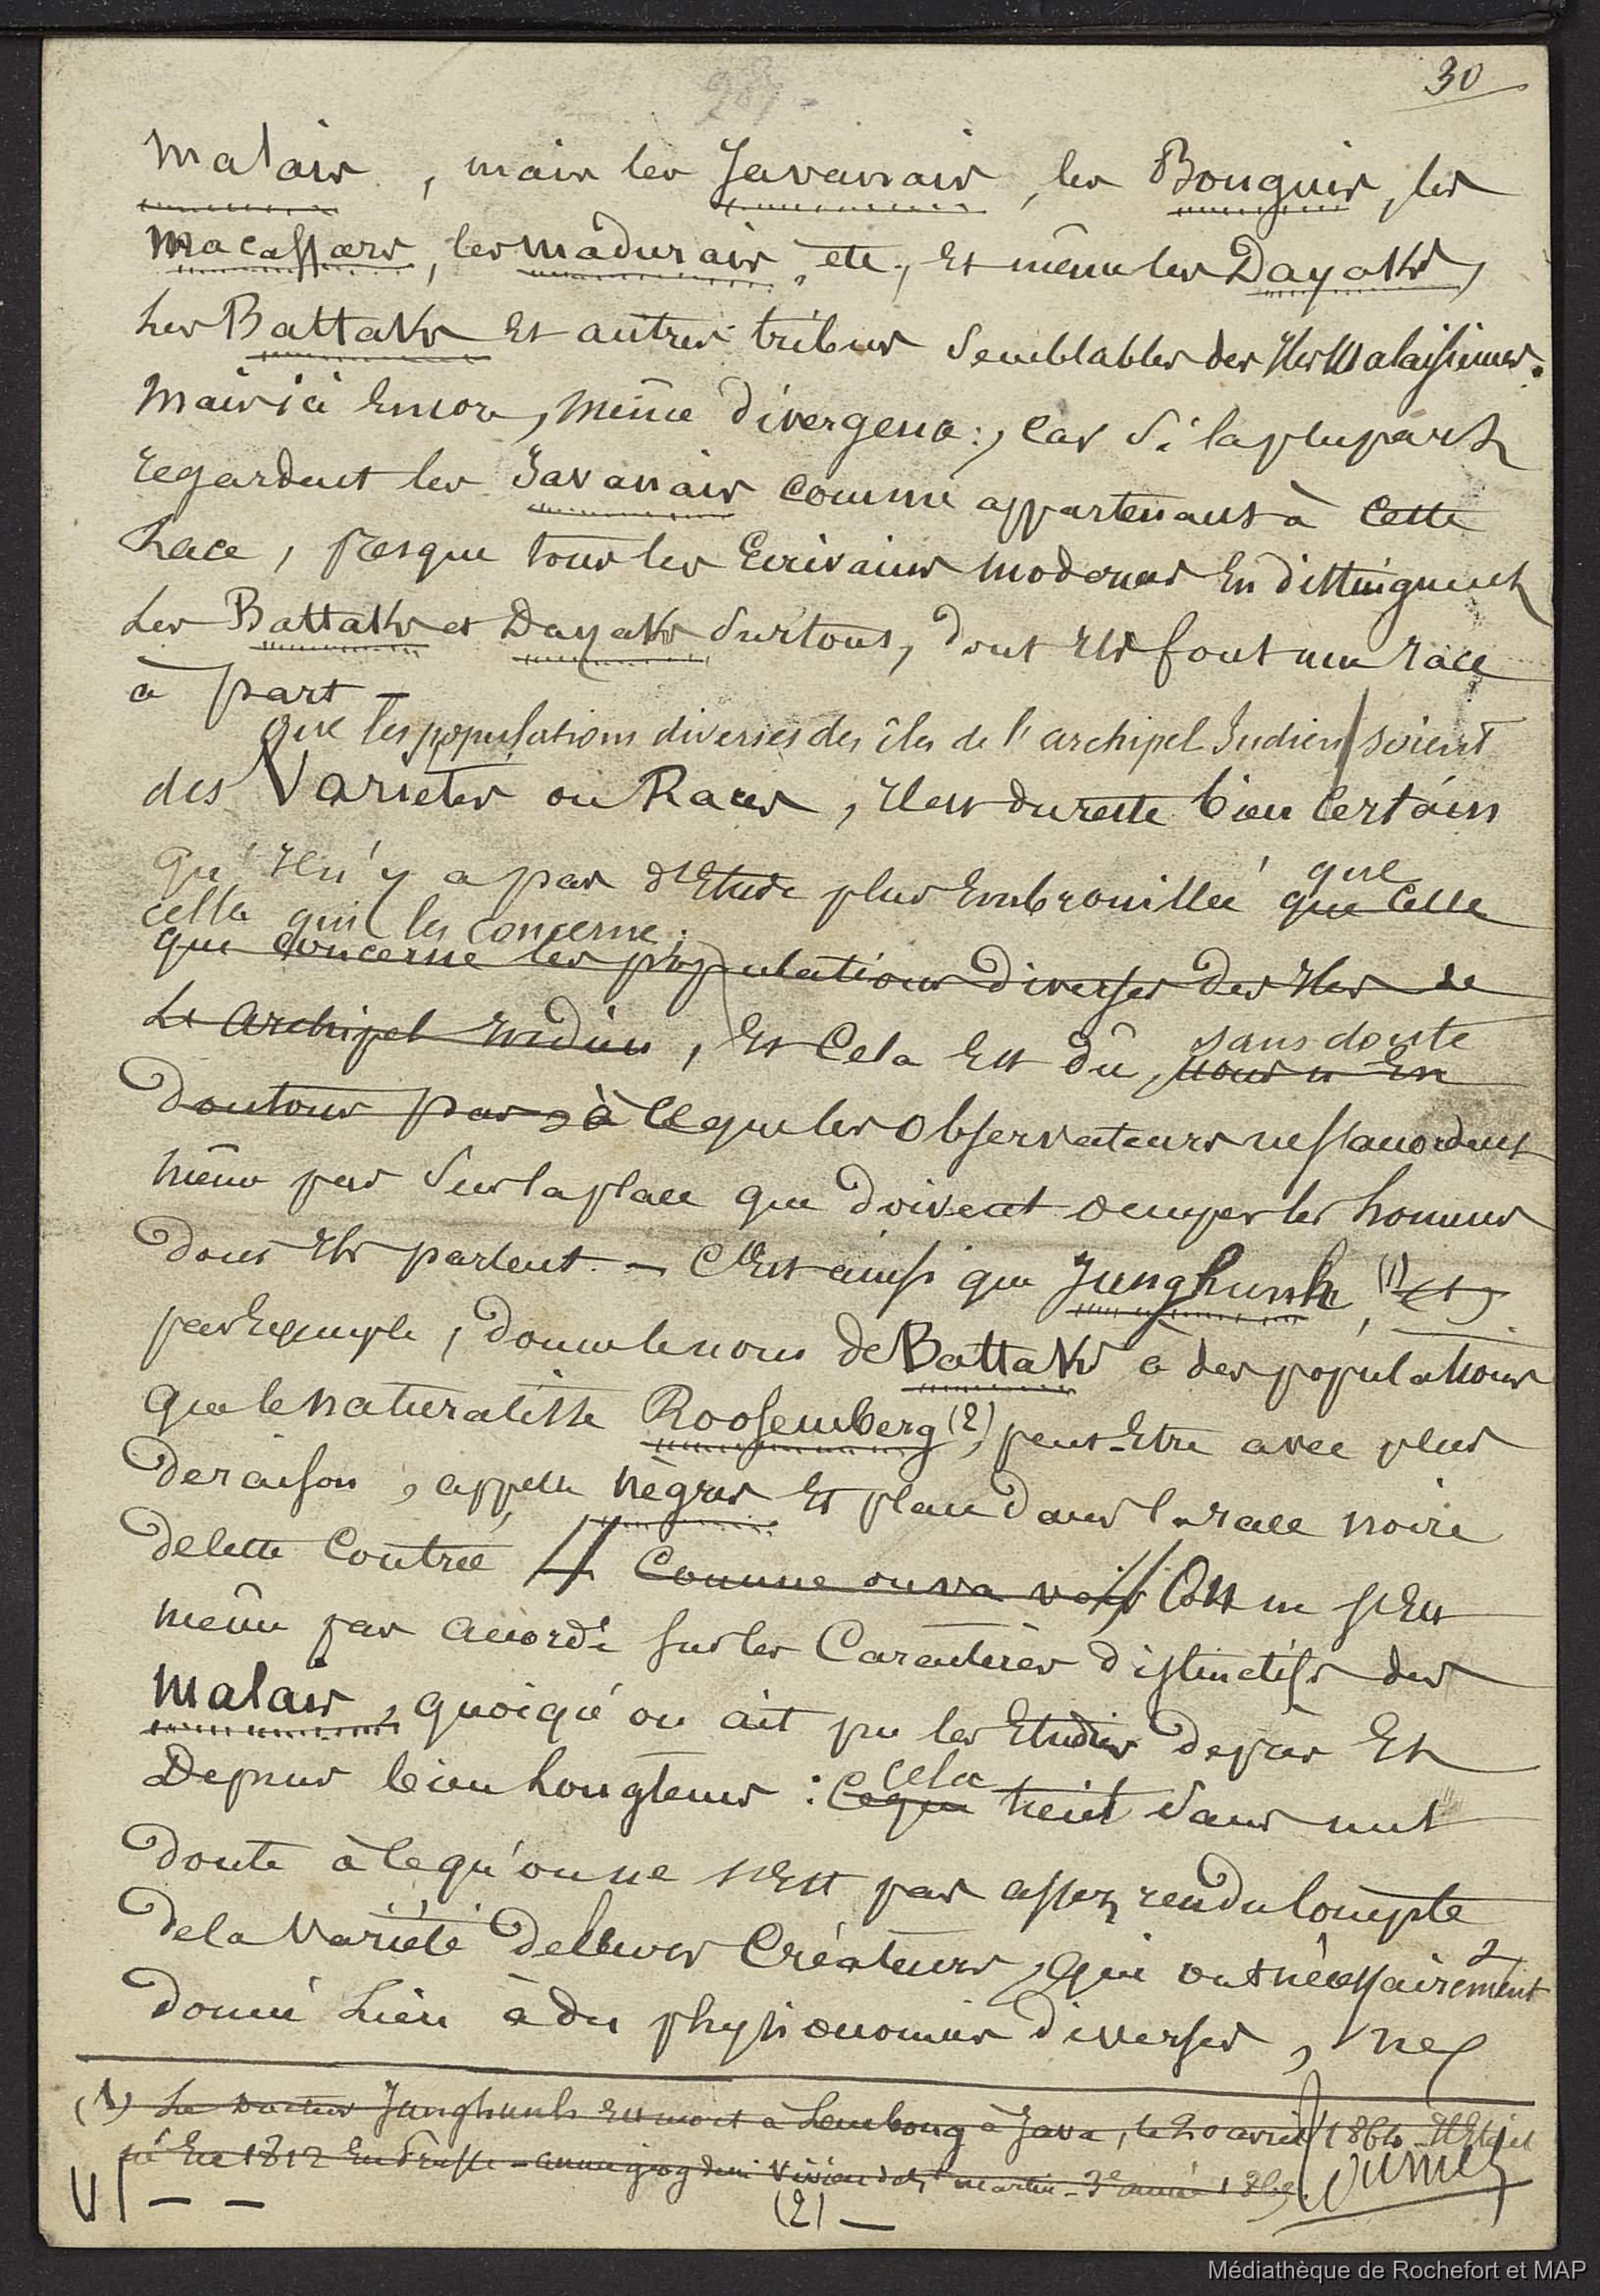 30
287.
Malais, mais les Javanais, les Bouguis, les
Macassars, les Madurais, etc., et même les Dayaks,
les Battaks et autres tribus semblables des Iles Malaisiennes.
Mais ici encore, même divergence:, car si la plupart
regardent les Javanais comme appartenans à cette
Race, presque tous les Ecrivains modernes en distinguent
les Battaks et Dayaks surtous, dont ils font une race
à part —
que les populations diverses des îles de l'archipel Indien soient
des Variétés ou Races, il est du reste bien certain
qu'il n'y a pas d'Etude plus embrouillée que celle
que
celle qui les concerne;
que concerne les populations diverses des Iles de
L'archipel Indien, et cela est dû, nous n'en
sans doute
doutons pas, à ce que les observateurs ne s'accordent
même pas sur la place que doivent occuper les hommes
dont ils parlent. — C'est ainsi que Junghunh, (1) (1)
par Exemple, donne le nom de Battaks à des populations
que le naturaliste Roosemberg (2), peut-Etre avec plus
de raison, appelle nègres et place dans la race noire
de cette Contrée, comme on va voir // On ne s'est
même pas accordé sur les Caractères distinctifs des
Malais, quoiqu'on ait pu les Etudier de près et
Depuis bien longtems : ce qui tient sans nul
cela
doute à ce qu'on ne s'est pas assez rendu Compte
de la Variété de leurs Créateurs, qui ont nécessairement
donné Lieu à des physionomies diverses,
(1) Le Docteur Junghunh est mort à Lembong à Java, le 20 avril 1864. Il Etait
né En 1812 En Prusse — année géog de Mr Vivien de St Martin — 3e année 1865.
(2) —